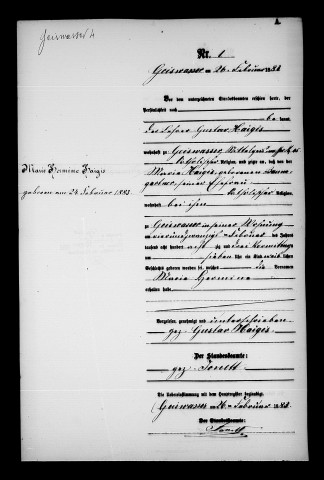 1
Geiswasser 4
Nr. 1
Geiswasser am 26. Februar 1883
Vor dem unterzeichneten Standesbeamten erschien heute, der
Persönlichkeit nach
be kannt,
der Lehrer Gustav Haigis
wohnhaft zu Geiswasser,
katholischer Religion, und zeigte an, daß von der
Maria Haigis, geborenen
seiner Ehefrau
katholischer Religion,
wohnhaft bei ihm
Marie Hermine Haigis
geboren am 24. Februar 1883.
zu Geiswasser in seiner Wohnung
am vierundzwanzigsten Februar des Jahres
tausend acht hundert achtzig und drei Vormittags
um sieben Uhr ein Kind weiblichen
Geschlechts geboren worden sei, welches die Vornamen
Maria Hermina
erhalten habe
Vorgelesen, genehmigt und unterschrieben
gez. Gustav Haigis
Der Standesbeamte:
gez.
Die Uebereinstimmung mit dem Hauptregister beglaubigt
Geiswasser am 26. Februar 1883
Der Standesbeamte: